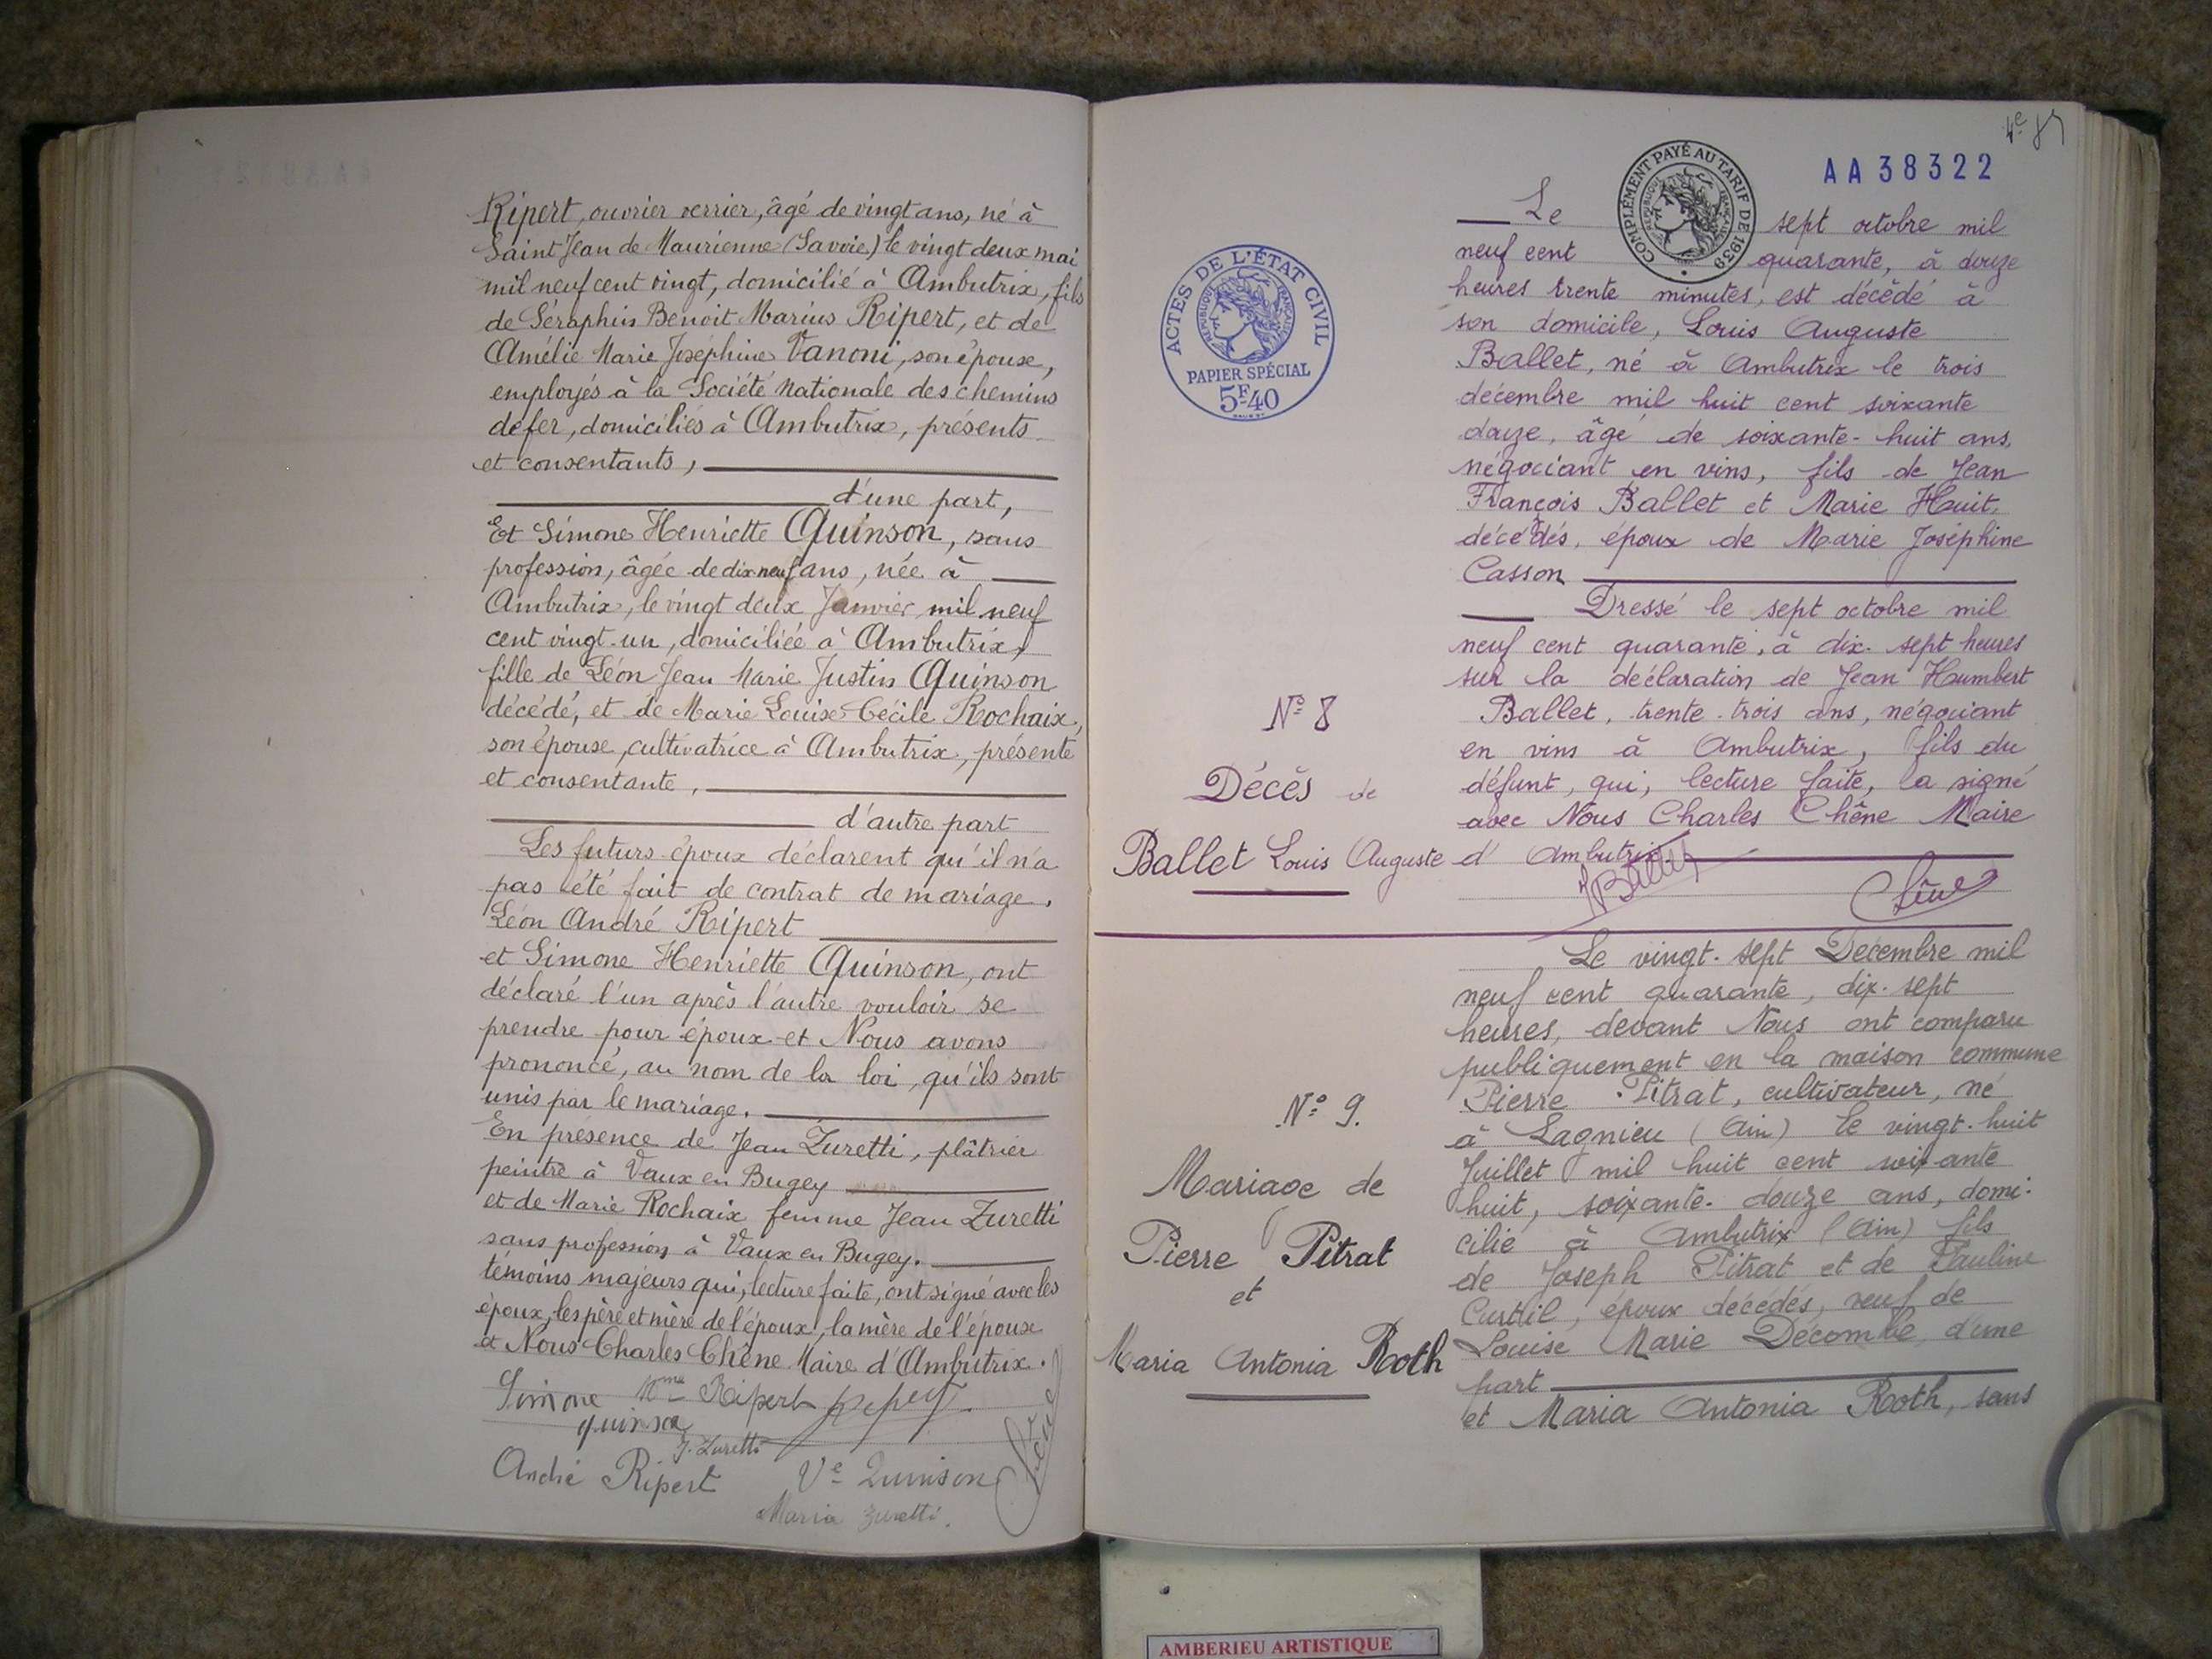 Ripert, ouvrier verrier, âgé de vingt ans, né à
Saint Jean de Maurienne (Savoie) le vingt deux mai
mil neuf cent vingt, domicilié à Ambutrix, fils
de Séraphin Benoit Marius Ripert, et de
Amélie Marie Joséphine Vanoni, son épouse,
employés à la Société Nationale des chemins
de fer, domiciliés à Ambutrix, présents
et consentants,
d'une part,
Et Simone Henriette Quinson, sans
profession, âgée de dix neuf ans, née à
Ambutrix, le vingt deux Janvier mil neuf
cent vingt-un, domiciliée à Ambutrix,
fille de Léon Jean Marie Justin Quinson
décédé, et de Marie Louise Cécile Rochaix,
son épouse, cultivatrice à Ambutrix, présente
et consentante,
d'autre part
Les futurs époux déclarent qu'il n'a
pas été fait de contrat de mariage.
Léon André Ripert
et Simone Henriette Quinson, ont
déclaré l'un après l'autre vouloir se
prendre pour époux et Nous avons
prononcé, au nom de la loi, qu'ils sont
unis par le mariage.
En présence de Jean Zuretti, plâtrier
peintre à Vaux en Bugey
et de Marie Rochaix femme Jean Zuretti
sans profession à Vaux en Bugey.
témoins majeurs qui, lecture faite, ont signé avec les
époux, les père et mère de l'époux, la mère de l'épouse
et Nous Charles Chêne Maire d'Ambutrix.
Simone Mme Ripert Ripert
quinson
J. Zuretti
André Ripert Ve Quinson
Maria Zuretti.
Chêne
4e
AA38322
COMPLÉMENT PAYÉ AU TARIF DE 1939
RÉPUBLIQUE FRANÇAISE
ACTES DE L'ÉTAT CIVIL
RÉPUBLIQUE FRANÇAISE
PAPIER SPÉCIAL
5F40
Le sept octobre mil
neuf cent quarante, à douze
heures trente minutes, est décédé à
son domicile, Louis Auguste
Ballet, né à Ambutrix le trois
décembre mil huit cent soixante
douze, âgé de soixante-huit ans,
négociant en vins, fils de Jean
François Ballet et Marie Huit,
décédés, époux de Marie Joséphine
Casson
Dressé le sept octobre mil
neuf cent quarante, à dix-sept heures
sur la déclaration de Jean Humbert
Ballet, trente-trois ans, négociant
en vins à Ambutrix, fils du
défunt, qui, lecture faite, a signé
avec Nous Charles Chêne Maire
d'Ambutrix.
Ballet Chêne
No 8
Décès de
Ballet Louis Auguste
Le vingt-sept Décembre mil
neuf cent quarante, dix-sept
heures, devant Nous ont comparu
publiquement en la maison commune
Pierre Pitrat, cultivateur, né
à Lagnieu (Ain) le vingt-huit
Juillet mil huit cent soixante
huit, soixante-douze ans, domi-
cilié à Ambutrix (Ain) fils
de Joseph Pitrat et de Pauline
Curtil, époux décédés, veuf de
Louise Marie Décombe, d'une
part
et Maria Antonia Roth, sans
No 9.
Mariage de
Pierre Pitrat
et
Maria Antonia Roth
AMBERIEU ARTISTIQUE